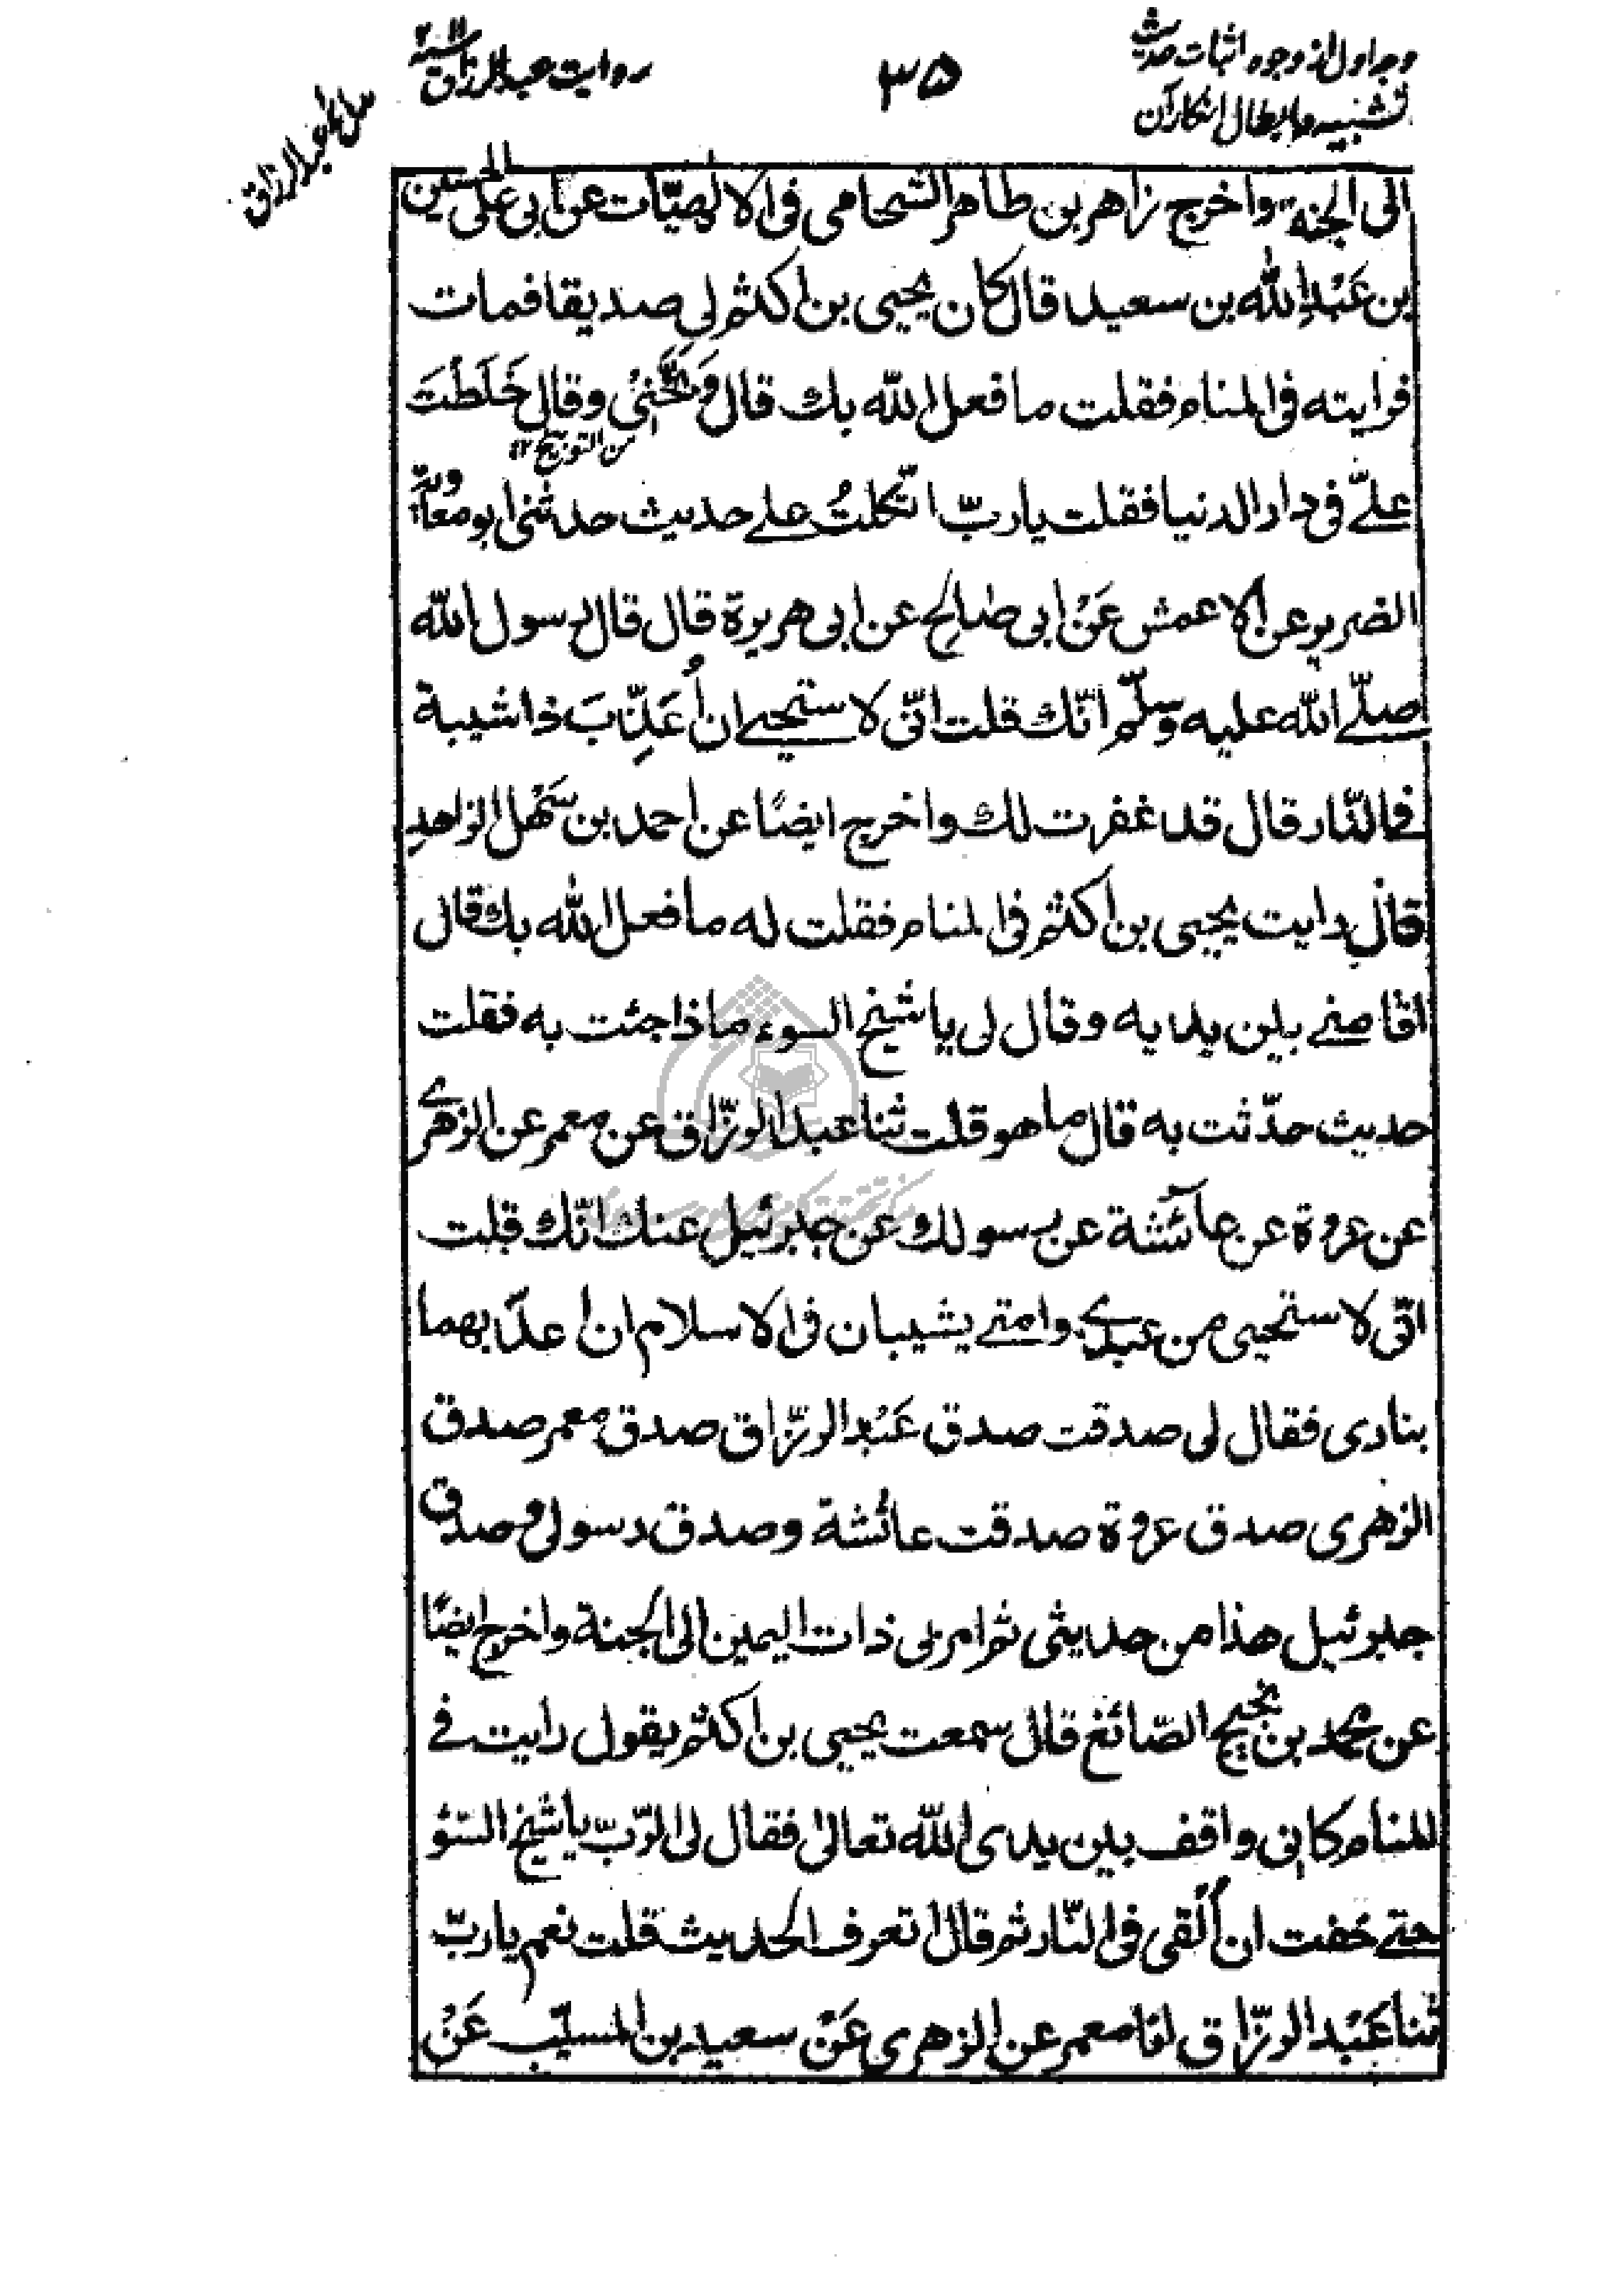 وجه اول از وجوه اثبات حدیث
تشبیه و ابطال انکار آن
۳۵
روایت عبدالرزاق
مدائح عبدالرزاق
الی الجنة واخرج زاهر بن طاهر الشحامی فی الالٰهیّات عن ابی علی الحسین
بن عَبْدِ الله بن سعید قال کان یحیی بن اکثم لی صدیقا فمات
فرایته فی المنام فقلت ما فعل الله بك قال وَبَّخَنِیْ وقال خَلَطْتَ
من التوبیخ ۱۲
علیّ فی دار الدنیا فقلت یا ربّ اتّکلتُ علے حدیث حدثنی ابو معاویة
الضریر عن الاعمش عَنْ ابی صالح عن ابی هریرة قال قال رسول الله
صلّے الله علیه وسلّم انّك قلت انّی لاستحیے ان اُعَذِّبَ ذا شیبة
فی النّار قال قد غفرت لك واخرج ایضًا عن احمد بن سَهْل الزاهدِ
قال رایت یحیی بن اکثم فی المنام فقلت له ما فعل الله بك قال
اقامنے بین یدیه وقال لی یا شیخ السوء ماذا جئت به فقلت
حدیث حدّثت به قال ما هو قلت ثنا عبد الرزّاق عن معمر عن الزهرے
عن عروة عن عائشة عن رسولك عن جبرئیل عنك انّك قلت
انّی لاستحیی من عبدے وامتے یشیبان فی الاسلام ان اعذّبهما
بناری فقال لی صدقت صدق عَبْد الرزّاق صدق معمر صدق
الزهری صدق عروة صدقت عائشة وصدق رسولی وصدق
جبرئیل هذا من حدیثی ثم امر بی ذات الیمین الی الجنة واخرج ایضًا
عن محمد بن نجیح الصّائغ قال سمعت یحیی بن اکثم یقول رایت فے
المنام کانی واقف بین یدی الله تعالیٰ فقال لی الرّبّ یا شیخ السّؤ
حتے خفت ان اُلْقی فی النّار ثم قال اتعرف الحدیث قلت نعم یا ربّ
ثنا عَبْد الرزّاق انا معمر عن الزهری عَنْ سعید بن المسیّب عَنْ